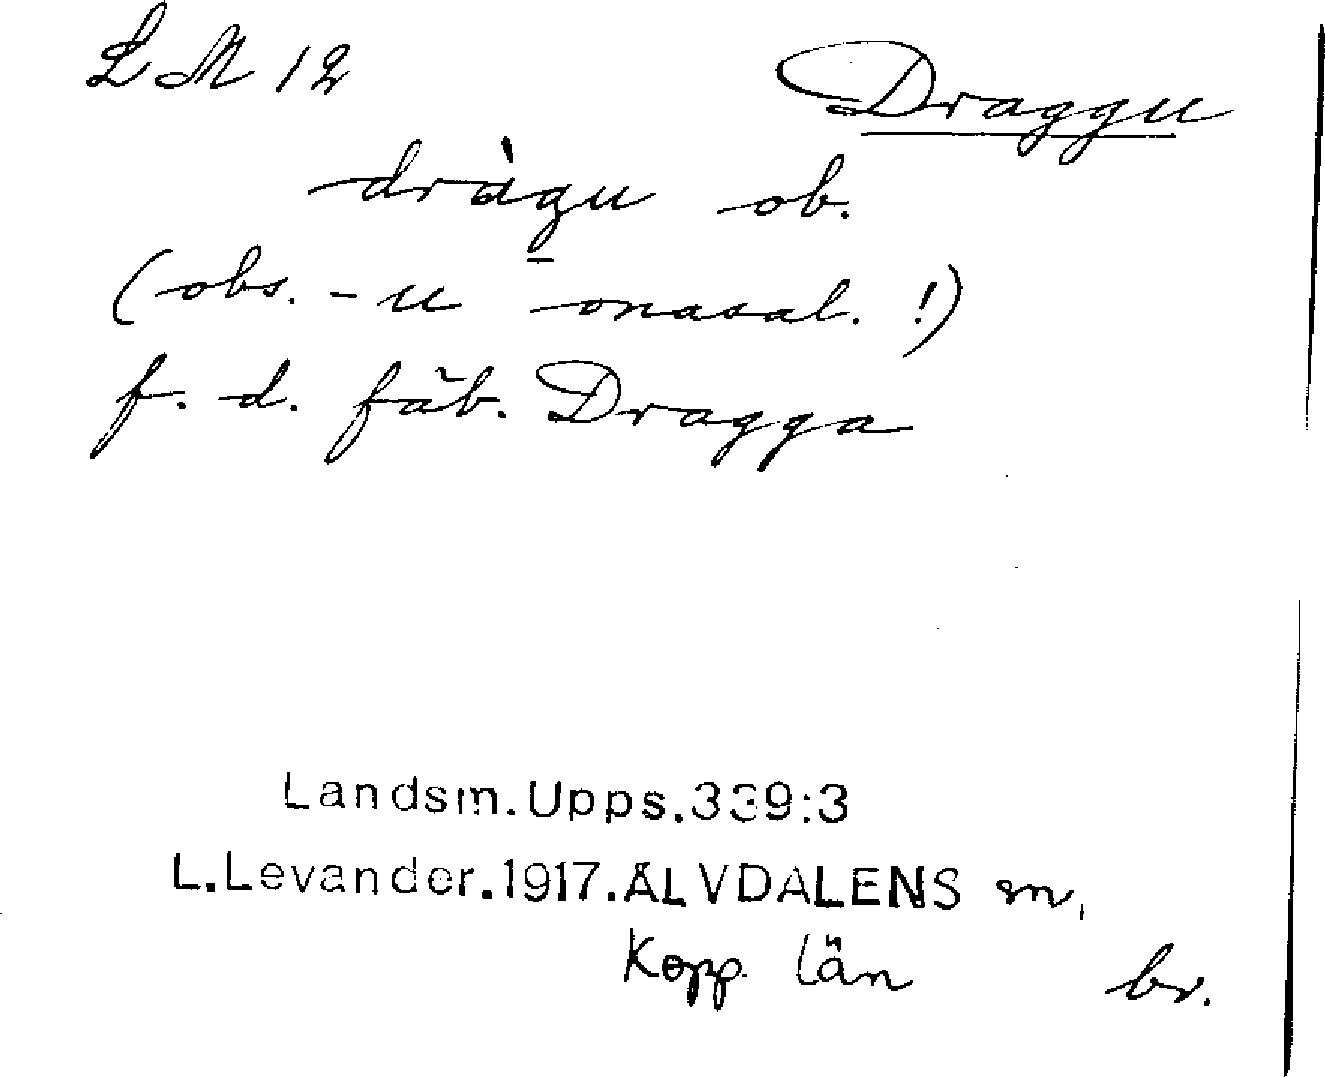 LM 12 Draggu
dràgu ob.
(obs. -u onasal.!)
f. d. fäb. Dragga
Landsm.Upps.339:3
L.Levander.1917.ÄLVDALENS sn,
Kopp. län br.